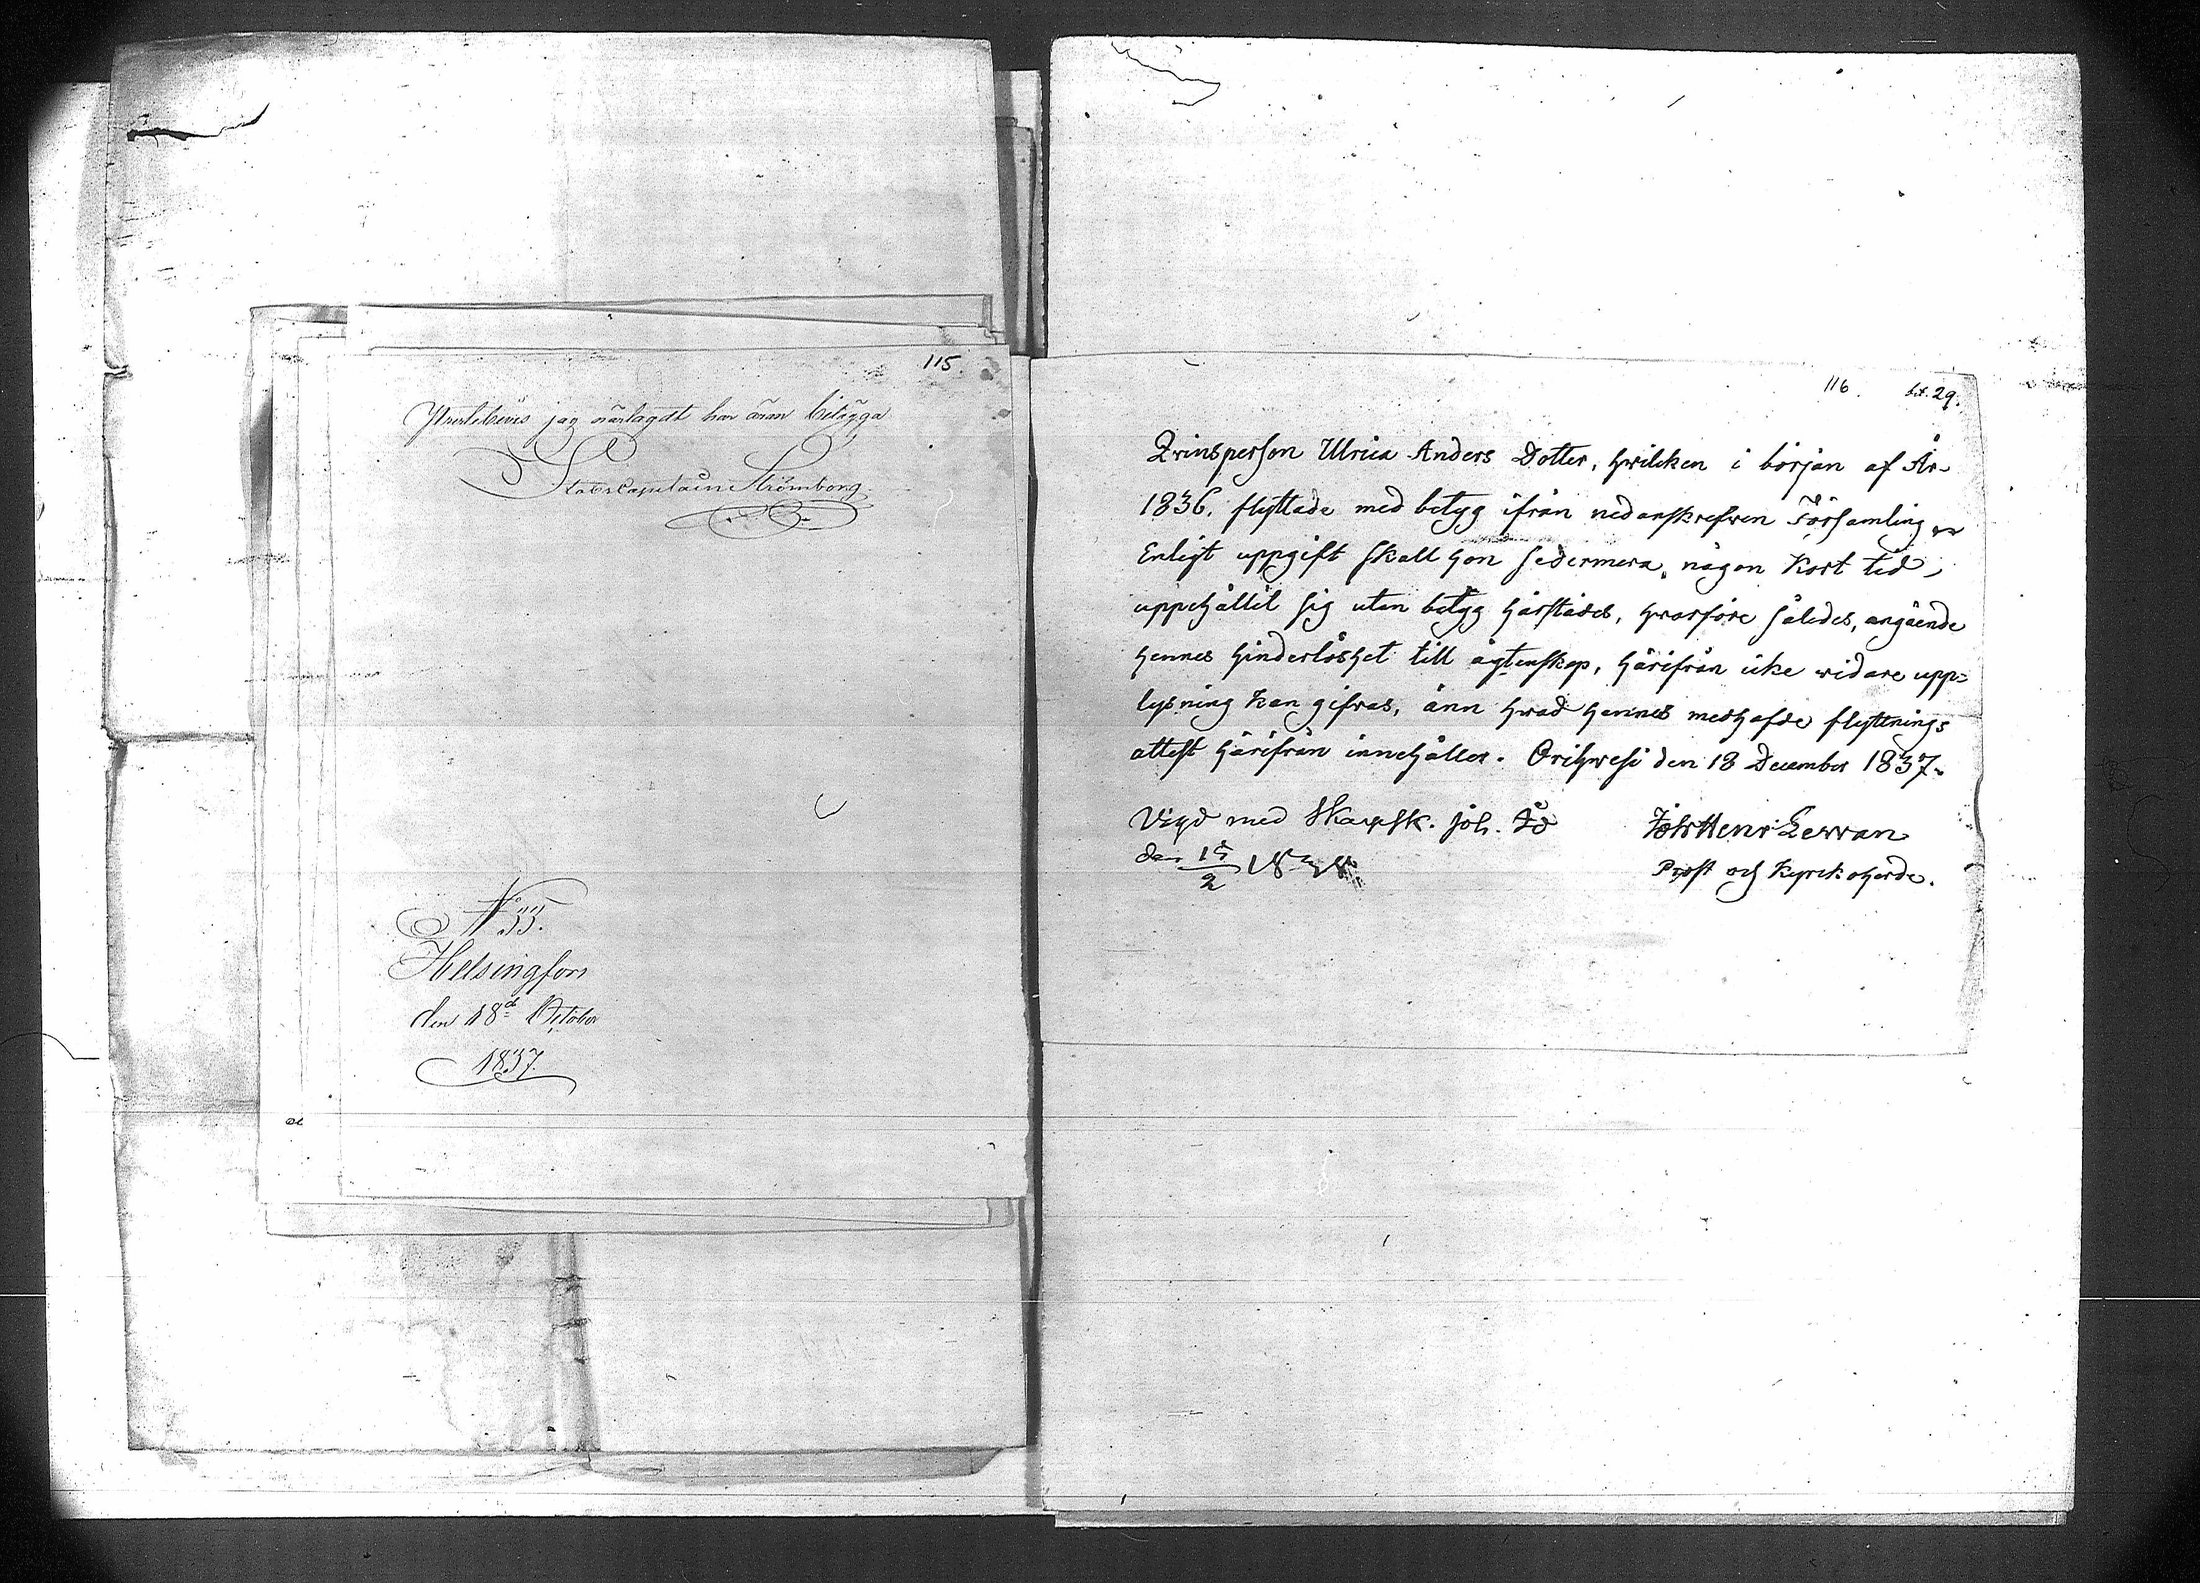 115.
jag närlagdt har äran bilägga
Stabscapitain Strömborg.
N° 55.
Helsingfors
den 18d October
1837.
116. bil. 29.
Qvinsperson Ulrica Anders Dotter, hwilcken i början af År
1836. flyttade med betyg ifrån nedanskrefwen Församling
Enligt uppgift skall hon sedermera, någon kort tid,
uppehållit sig utan betyg härstädes, hwarföre således, angående
hennes hinderlöshet till ägtenskap, härifrån icke widare upp=
lysning kan gifwas, änn hwad hennes medhafde flyttnings
attest härifrån innehåller. Orihwesi den 18 December 1837.
Vigd med Skarpsk. Joh. Öö
den 15/2 1838
Joh Henr: Lewan
Prost och Kyrckoherde.